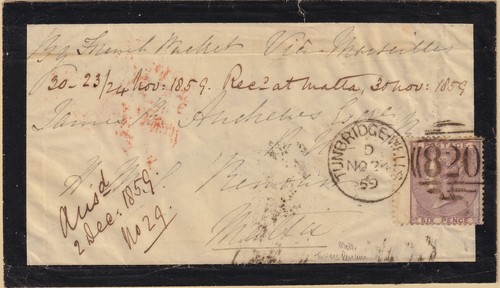 Per French Packet Via Marseilles
30 - 23/24 Nov: 1859. Rec.d at Malta, 30 Nov: 1859
James Andrews Esq.
H. M. S.
Malta
Ans'd
2 Dec: 1859.
No 29.
TUNBRIDGE-WELLS
D
NO 24
59
820
SIX PENCE